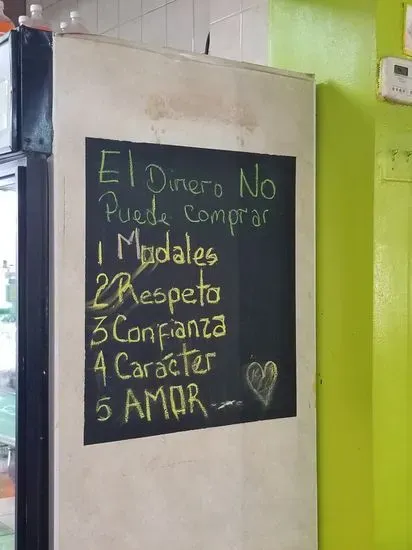 El Dinero No
Puede Comprar
1 Modales
2 Respeto
3 Confianza
4 Carácter
5 AMOR